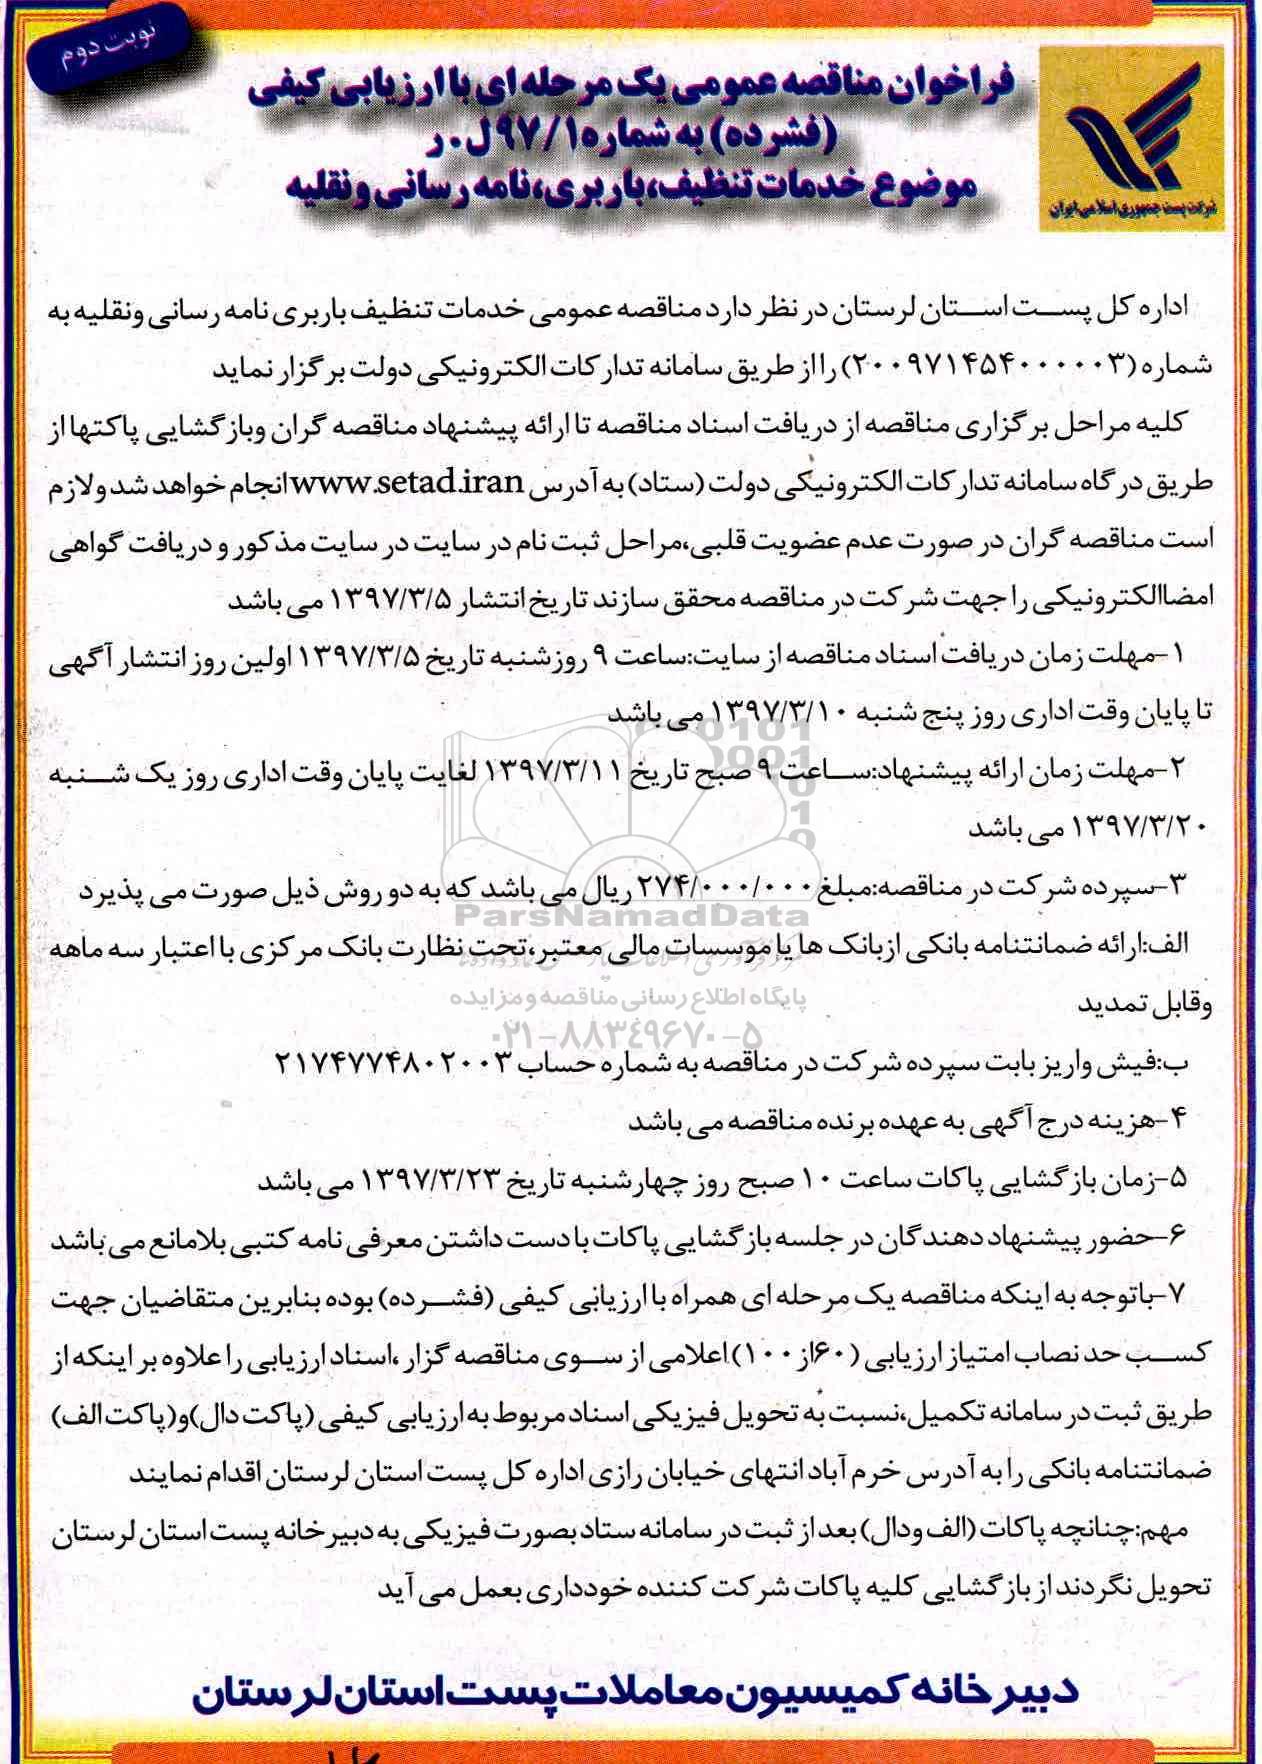 نوبت دوم
فراخوان مناقصه عمومی یک مرحله ای با ارزیابی کیفی
(فشرده) به شماره ۹۷/۱ل.ر
موضوع خدمات تنظیف،باربری،نامه رسانی ونقلیه
شرکت پست جمهوری اسلامی ایران
اداره کل پست استان لرستان در نظر دارد مناقصه عمومی خدمات تنظیف باربری نامه رسانی ونقلیه به
شماره (۲۰۰۹۷۱۴۵۴۰۰۰۰۰۳) را از طریق سامانه تدارکات الکترونیکی دولت برگزار نماید
کلیه مراحل برگزاری مناقصه از دریافت اسناد مناقصه تا ارائه پیشنهاد مناقصه گران وبازگشایی پاکتها از
طریق درگاه سامانه تدارکات الکترونیکی دولت (ستاد) به آدرس www.setad.iran انجام خواهد شد ولازم
است مناقصه گران در صورت عدم عضویت قلبی،مراحل ثبت نام در سایت در سایت مذکور و دریافت گواهی
امضاالکترونیکی را جهت شرکت در مناقصه محقق سازند تاریخ انتشار ۱۳۹۷/۳/۵ می باشد
۱-مهلت زمان دریافت اسناد مناقصه از سایت:ساعت ۹ روزشنبه تاریخ ۱۳۹۷/۳/۵ اولین روز انتشار آگهی
تا پایان وقت اداری روز پنج شنبه ۱۳۹۷/۳/۱۰ می باشد
۲-مهلت زمان ارائه پیشنهاد:ساعت ۹ صبح تاریخ ۱۳۹۷/۳/۱۱ لغایت پایان وقت اداری روز یک شنبه
۱۳۹۷/۳/۲۰ می باشد
۳-سپرده شرکت در مناقصه:مبلغ ۲۷۴/۰۰۰/۰۰۰ ریال می باشد که به دو روش ذیل صورت می پذیرد
ParsNamadData
الف:ارائه ضمانتنامه بانکی ازبانک ها یا موسسات مالی معتبر،تحت نظارت بانک مرکزی با اعتبار سه ماهه
پایگاه اطلاع رسانی مناقصه و مزایده
وقابل تمدید
۰۲۱-۸۸۳۴۹۶۷۰-۵
ب:فیش واریز بابت سپرده شرکت در مناقصه به شماره حساب ۲۱۷۴۷۷۴۸۰۲۰۰۳
۴-هزینه درج آگهی به عهده برنده مناقصه می باشد
۵-زمان بازگشایی پاکات ساعت ۱۰ صبح روز چهارشنبه تاریخ ۱۳۹۷/۳/۲۳ می باشد
۶-حضور پیشنهاد دهندگان در جلسه بازگشایی پاکات با دست داشتن معرفی نامه کتبی بلامانع می باشد
۷-باتوجه به اینکه مناقصه یک مرحله ای همراه با ارزیابی کیفی (فشرده) بوده بنابرین متقاضیان جهت
کسب حد نصاب امتیاز ارزیابی (۶۰از۱۰۰)اعلامی از سوی مناقصه گزار،اسناد ارزیابی را علاوه بر اینکه از
طریق ثبت در سامانه تکمیل،نسبت به تحویل فیزیکی اسناد مربوط به ارزیابی کیفی (پاکت دال)و(پاکت الف)
ضمانتنامه بانکی را به آدرس خرم آباد انتهای خیابان رازی اداره کل پست استان لرستان اقدام نمایند
مهم:چنانچه پاکات (الف ودال) بعد از ثبت در سامانه ستاد بصورت فیزیکی به دبیرخانه پست استان لرستان
تحویل نگردند از بازگشایی کلیه پاکات شرکت کننده خودداری بعمل می آید
دبیرخانه کمیسیون معاملات پست استان لرستان